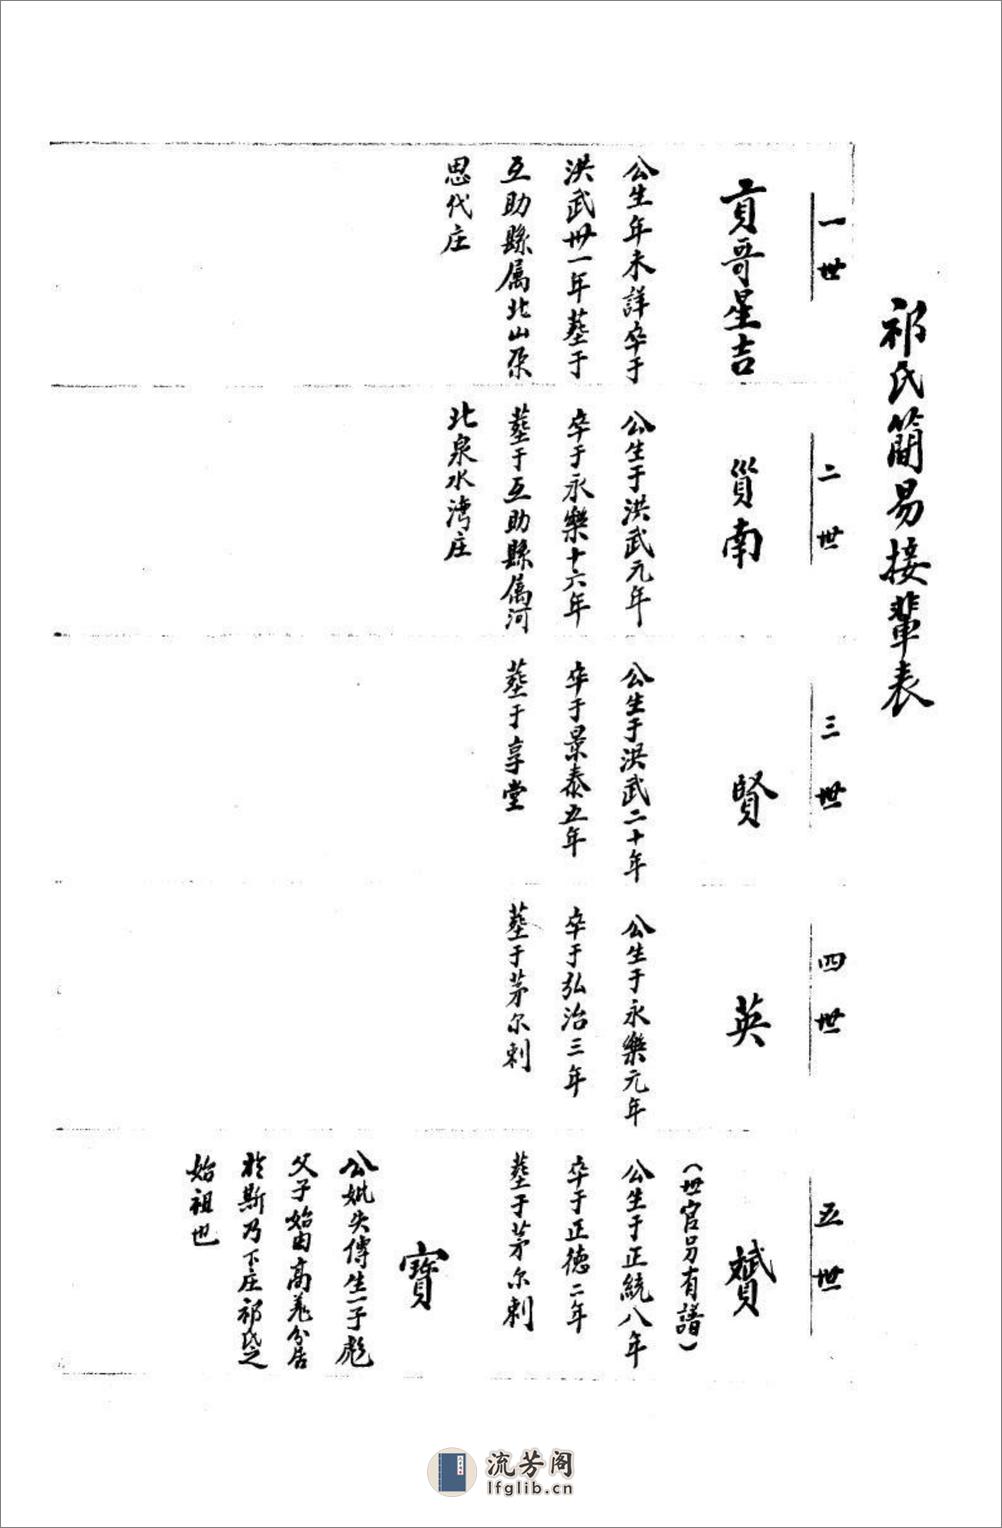 祁氏簡易接輩表
一世
貢哥星吉
公生年未詳卒于
洪武卅一年墓于
互助縣属北山朶
思代庄
二世
貭南
公生于洪武元年
卒于永樂十六年
墓于互助縣属河
北泉水湾庄
三世
賢
公生于洪武二十年
卒于景泰五年
墓于享堂
四世
英
公生于永樂元年
卒于弘治三年
墓于茅尔剌
五世
贇
(世官另有譜)
公生于正統八年
卒于正德二年
墓于茅尔剌
寳
公妣失傳生一子彪
父子始由高羌分居
於斯乃下庄祁氏之
始祖也
流芳阁
lfglib.cn